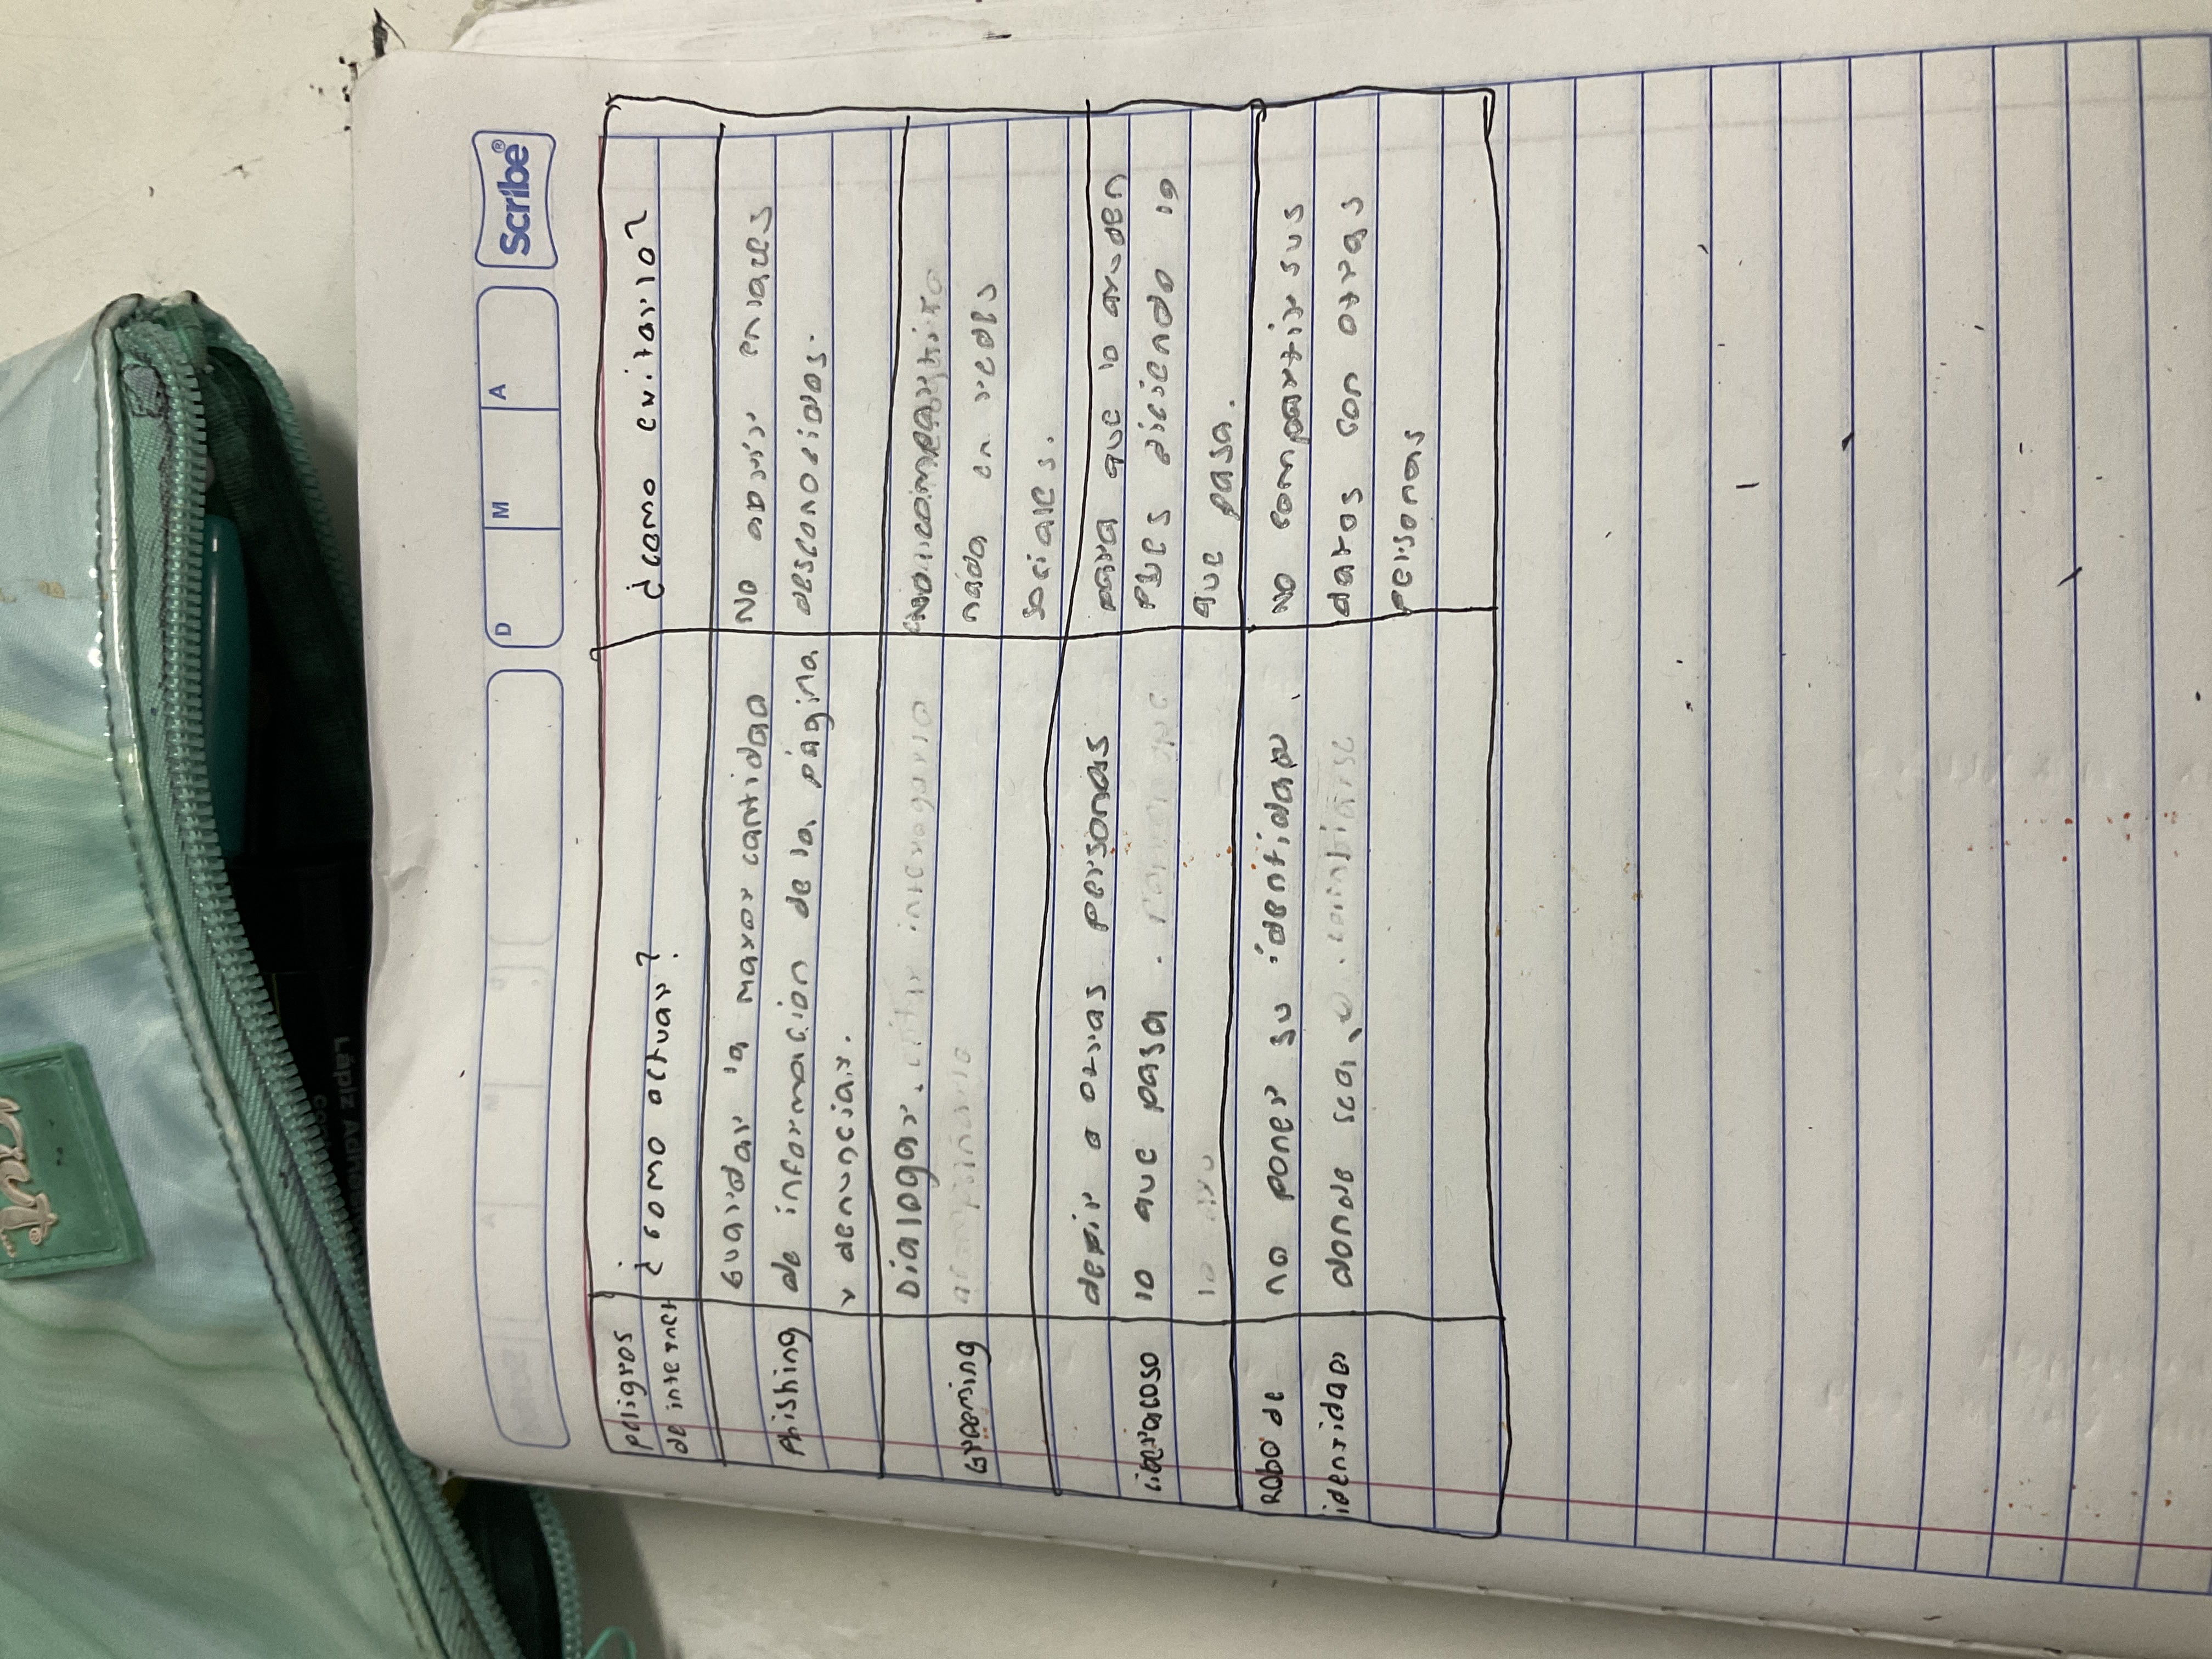 D M A Scribe®
peligros de internet
¿como actuar?
¿como evitarlo?
Phishing
Guardar la mayor cantidad
de informacion de la página
y denunciar.
No abrir enlaces
desconocidos.
Grooming
Dialogar.
nada en redes
sociales.
Ciberacoso
decir a otras personas
lo que pasa.
para que lo ayuden
pues diciendo lo
que pasa.
Robo de
identidad
no poner su identidad
donde sea
No compartir sus
datos con otras
personas
Lápiz Adhes